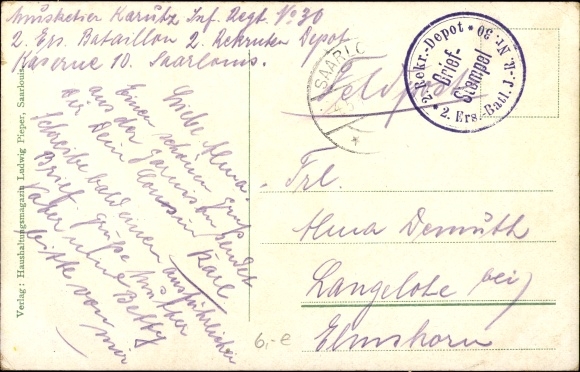 Musketier Karutz Inf. Regt. No 30
2. Ers. Bataillon 2. Rekruten Depot
Kaserne 10. Saarlouis.
Feldpost
SAARLO
2. Rekr.-Depot * 2. Ers.-Batl. J.-R. Nr. 30 *
Brief-
Stempel
Liebe Alma.
Einen schönen Gruß
aus der Garnison sendet
Dir Dein Cousin Karl
Schreibe bald einen ausführlichen
Brief. grüße Mutter
Vater und Betty
bitte von mir
Frl.
Alma Demuth
Langelohe bei
Elmshorn
6,- e
Verlag: Haushaltungsmagazin Ludwig Pieper, Saarlouis